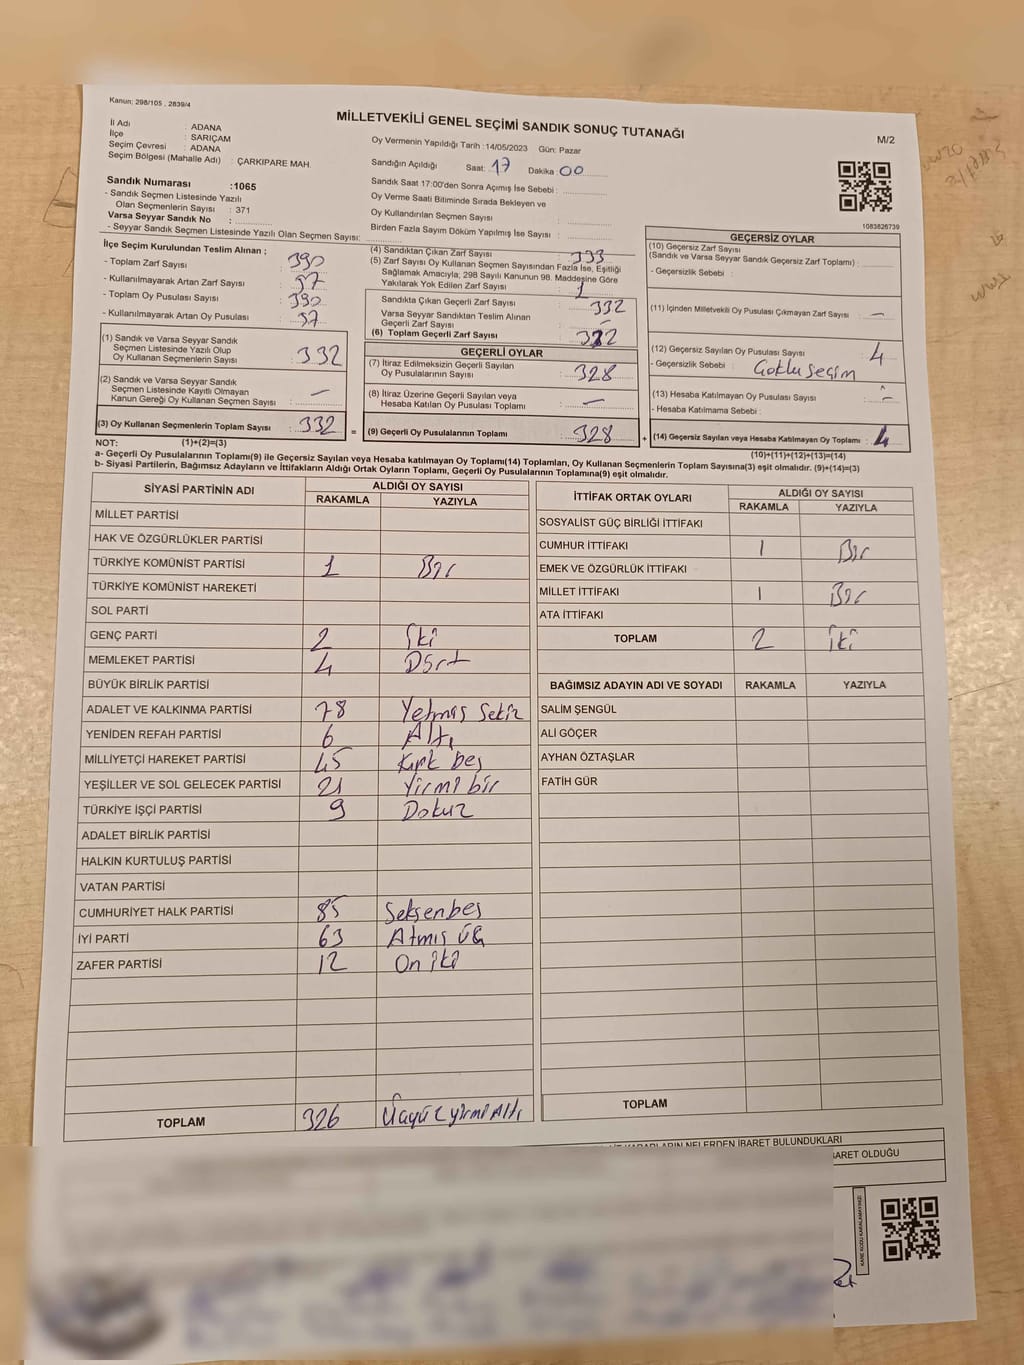 Kanun: 298/105 , 2839/4
MİLLETVEKİLİ GENEL SEÇİMİ SANDIK SONUÇ TUTANAĞI
M/2
İl Adı : ADANA
İlçe : SARIÇAM
Seçim Çevresi : ADANA
Seçim Bölgesi (Mahalle Adı) : ÇARKIPARE MAH.
Oy Vermenin Yapıldığı Tarih :14/05/2023 Gün: Pazar
Sandığın Açıldığı Saat: 17 Dakika: 00
Sandık Saat 17:00'den Sonra Açımış İse Sebebi :
Oy Verme Saati Bitiminde Sırada Bekleyen ve
Oy Kullandırılan Seçmen Sayısı :
Birden Fazla Sayım Döküm Yapılmış İse Sayısı :
1083826739
Sandık Numarası :1065
- Sandık Seçmen Listesinde Yazılı
Olan Seçmenlerin Sayısı : 371
Varsa Seyyar Sandık No :
- Seyyar Sandık Seçmen Listesinde Yazılı Olan Seçmen Sayısı:
İlçe Seçim Kurulundan Teslim Alınan ;
- Toplam Zarf Sayısı : 390
- Kullanılmayarak Artan Zarf Sayısı : 57
- Toplam Oy Pusulası Sayısı : 390
- Kullanılmayarak Artan Oy Pusulası : 57
(1) Sandık ve Varsa Seyyar Sandık
Seçmen Listesinde Yazılı Olup
Oy Kullanan Seçmenlerin Sayısı : 332
(2) Sandık ve Varsa Seyyar Sandık
Seçmen Listesinde Kayıtlı Olmayan
Kanun Gereği Oy Kullanan Seçmen Sayısı : —
(3) Oy Kullanan Seçmenlerin Toplam Sayısı : 332 =
(4) Sandıktan Çıkan Zarf Sayısı : 333
(5) Zarf Sayısı Oy Kullanan Seçmen Sayısından Fazla İse, Eşitliği
Sağlamak Amacıyla; 298 Sayılı Kanunun 98. Maddesine Göre
Yakılarak Yok Edilen Zarf Sayısı : 1
Sandıkta Çıkan Geçerli Zarf Sayısı : 332
Varsa Seyyar Sandıktan Teslim Alınan
Geçerli Zarf Sayısı : —
(6) Toplam Geçerli Zarf Sayısı : 332
GEÇERLİ OYLAR
(7) İtiraz Edilmeksizin Geçerli Sayılan
Oy Pusulalarının Sayısı : 328
(8) İtiraz Üzerine Geçerli Sayılan veya
Hesaba Katılan Oy Pusulası Toplamı : —
(9) Geçerli Oy Pusulalarının Toplamı : 328 +
GEÇERSİZ OYLAR
(10) Geçersiz Zarf Sayısı
(Sandık ve Varsa Seyyar Sandık Geçersiz Zarf Toplamı) :
- Geçersizlik Sebebi :
(11) İçinden Milletvekili Oy Pusulası Çıkmayan Zarf Sayısı : —
(12) Geçersiz Sayılan Oy Pusulası Sayısı : 4
- Geçersizlik Sebebi : Çoklu Seçim
(13) Hesaba Katılmayan Oy Pusulası Sayısı : —
- Hesaba Katılmama Sebebi :
(14) Geçersiz Sayılan veya Hesaba Katılmayan Oy Toplamı : 4
NOT: (1)+(2)=(3)
(10)+(11)+(12)+(13)=(14)
a- Geçerli Oy Pusulalarının Toplamı(9) ile Geçersiz Sayılan veya Hesaba Katılmayan Oy Toplamı(14) Toplamları, Oy Kullanan Seçmenlerin Toplam Sayısına(3) eşit olmalıdır. (9)+(14)=(3)
b- Siyasi Partilerin, Bağımsız Adayların ve İttifakların Aldığı Ortak Oyların Toplamı, Geçerli Oy Pusulalarının Toplamına(9) eşit olmalıdır.
SİYASİ PARTİNİN ADI ALDIĞI OY SAYISI
RAKAMLA YAZIYLA
MİLLET PARTİSİ
HAK VE ÖZGÜRLÜKLER PARTİSİ
TÜRKİYE KOMÜNİST PARTİSİ 1 Bir
TÜRKİYE KOMÜNİST HAREKETİ
SOL PARTİ
GENÇ PARTİ 2 İki
MEMLEKET PARTİSİ 4 Dört
BÜYÜK BİRLİK PARTİSİ
ADALET VE KALKINMA PARTİSİ 78 Yetmiş Sekiz
YENİDEN REFAH PARTİSİ 6 Altı
MİLLİYETÇİ HAREKET PARTİSİ 45 Kırk beş
YEŞİLLER VE SOL GELECEK PARTİSİ 21 Yirmi bir
TÜRKİYE İŞÇİ PARTİSİ 9 Dokuz
ADALET BİRLİK PARTİSİ
HALKIN KURTULUŞ PARTİSİ
VATAN PARTİSİ
CUMHURİYET HALK PARTİSİ 85 Seksenbeş
İYİ PARTİ 63 Atmış Üç
ZAFER PARTİSİ 12 On iki
TOPLAM 326 Üçyüz yirmi Altı
İTTİFAK ORTAK OYLARI ALDIĞI OY SAYISI
RAKAMLA YAZIYLA
SOSYALİST GÜÇ BİRLİĞİ İTTİFAKI
CUMHUR İTTİFAKI 1 Bir
EMEK VE ÖZGÜRLÜK İTTİFAKI
MİLLET İTTİFAKI 1 Bir
ATA İTTİFAKI
TOPLAM 2 İki
BAĞIMSIZ ADAYIN ADI VE SOYADI RAKAMLA YAZIYLA
SALİM ŞENGÜL
ALİ GÖÇER
AYHAN ÖZTAŞLAR
FATİH GÜR
TOPLAM
NELERDEN İBARET BULUNDUKLARI
OLDUĞU